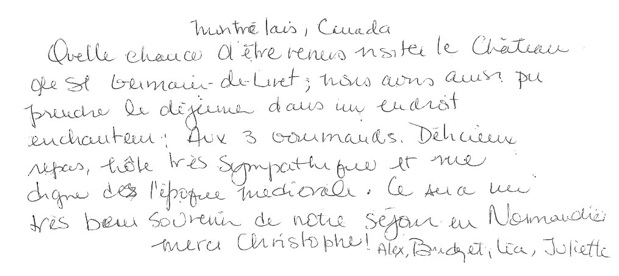 Montréalais, Canada
Quelle chance d'être venus visiter le Château
de St Germain-de-Livet; nous avons aussi pu
prendre le déjeuner dans un endroit
enchanteur: Aux 3 Gourmands. Délicieux
repas, hôte très sympathique et vue
digne des l'époque médiévale. Ce sera un
très beau souvenir de notre séjour en Normandie
merci Christophe! Alex, Bridget, Léa, Juliette